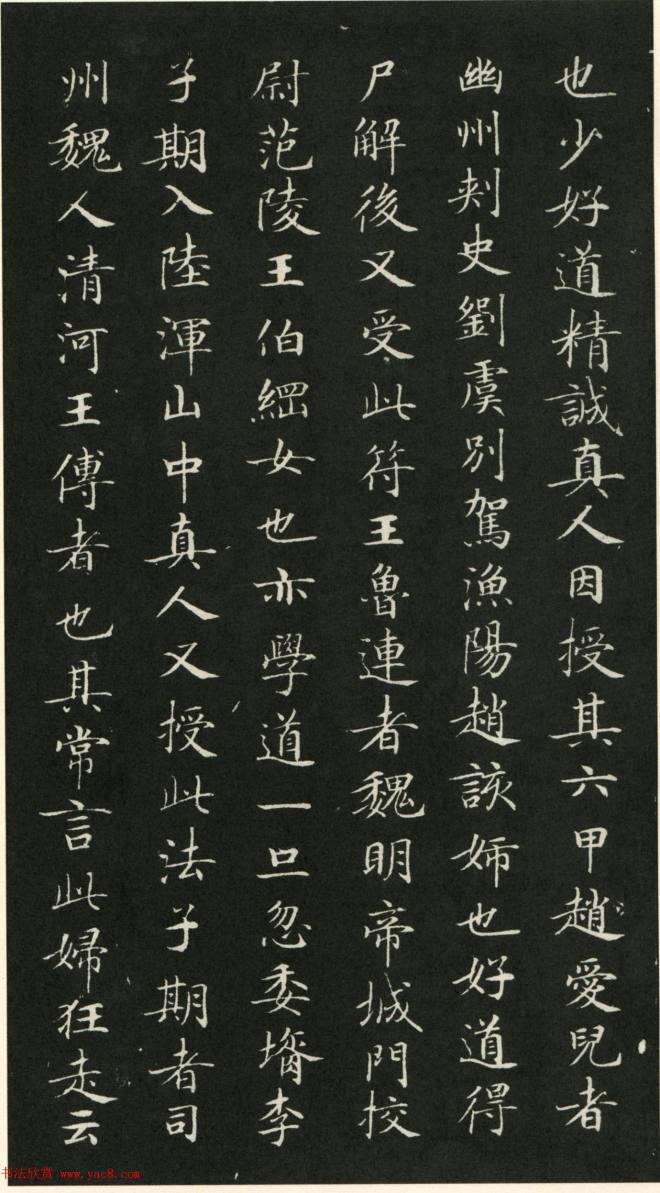 也少好道精誠真人因授其六甲趙愛兒者
幽州刾史劉虞別駕漁陽趙該姉也好道得
尸解後又受此符王魯連者魏明帝城門挍
尉范陵王伯綑女也亦學道一旦忽委壻李
子期入陸渾山中真人又授此法子期者司
州魏人清河王傅者也其常言此婦狂走云
书法欣赏 www.yac8.com